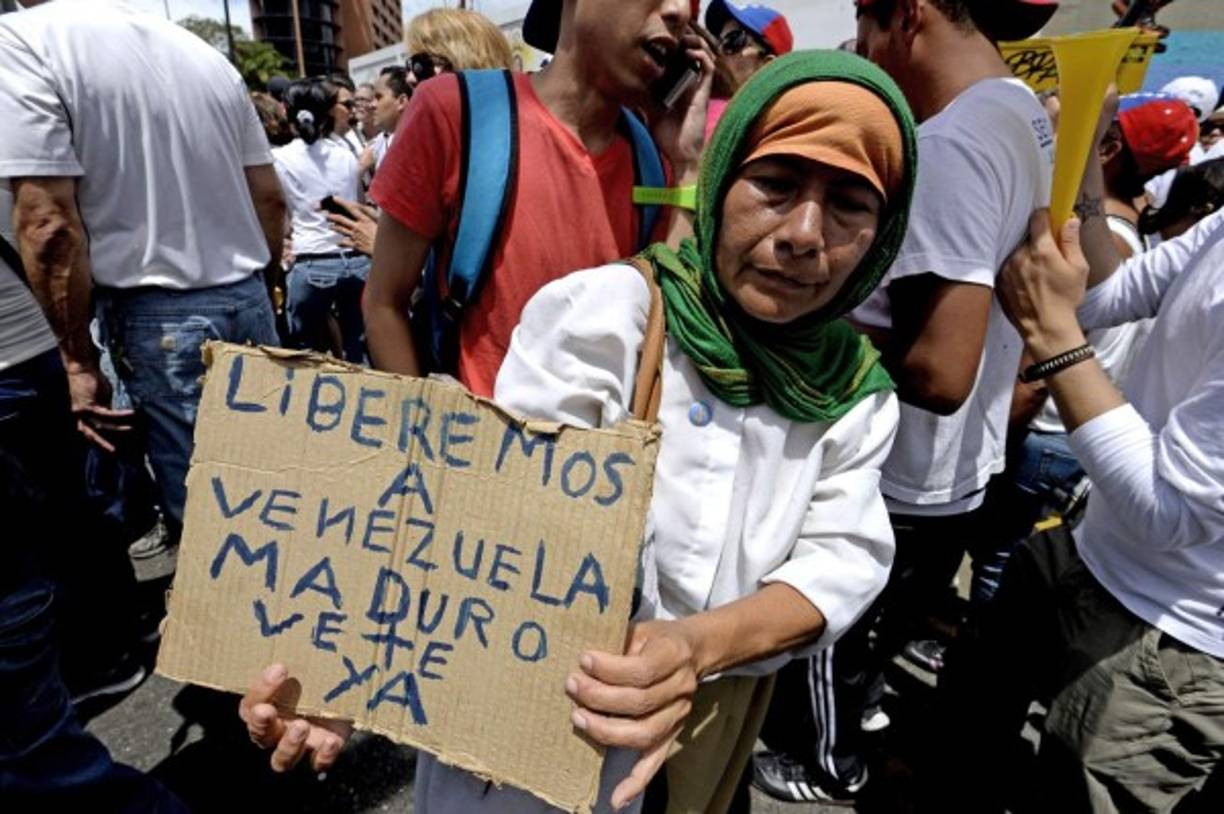 LIBEREMOS
A
VENEZUELA
MADURO
VETE
YA